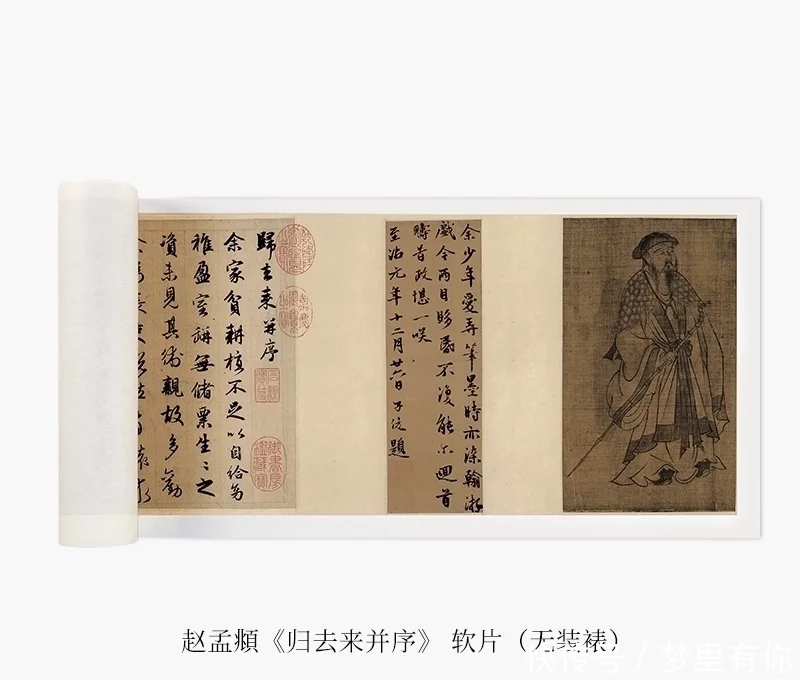 余少年愛弄筆墨時亦染翰游
戲今兩目眵昏不復能尒迴首
疇昔政堪一咲
至治元年十二月廿六日 題
歸去来并序
余家貧耕植不足以自給幼
稚盈室缾無儲粟生〻之
資未見其術親故多勸
御書房鑑藏寶
赵孟頫《归去来并序》 软片（无装裱）
快传号 / 梦里有你